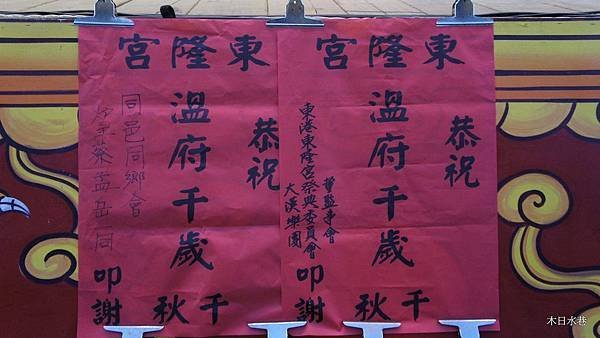 東隆宮
恭祝
溫府千歲
千秋
東港東隆宮祭典委員會
董監事會
大漢樂園
叩謝
東隆宮
恭祝
溫府千歲
千秋
同邑同鄉會
叩謝
木日水巷